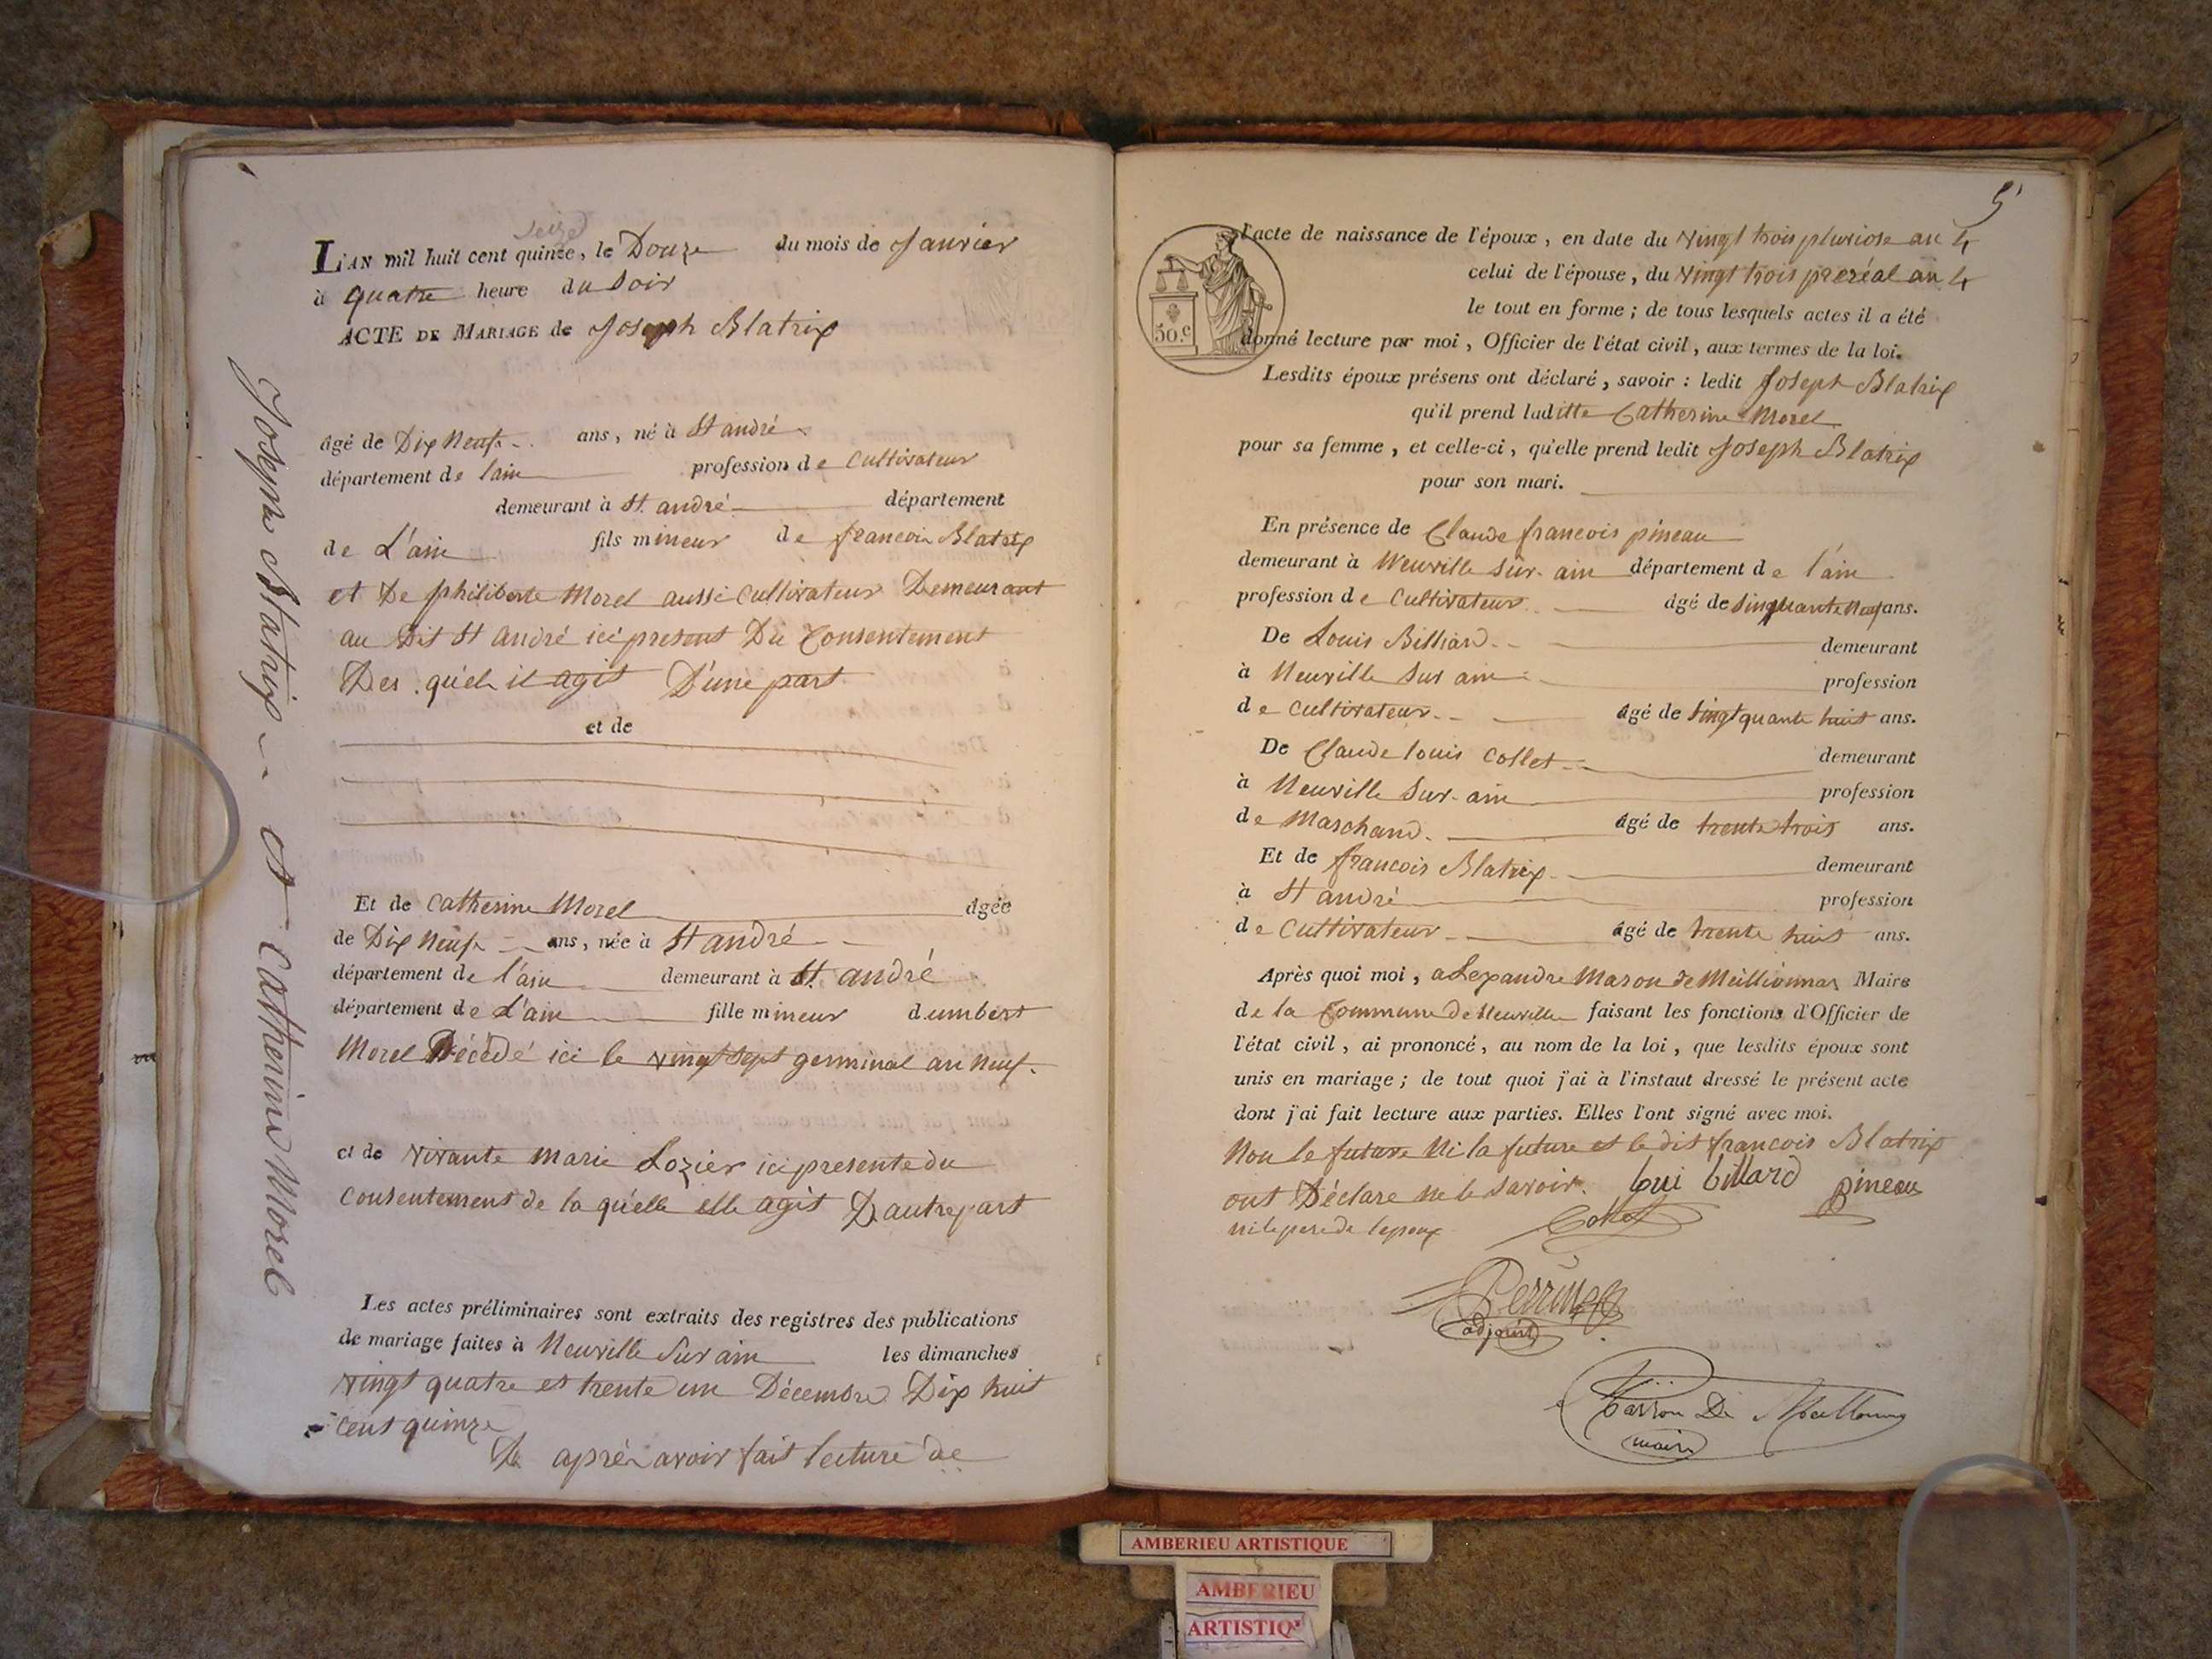 Joseph Blatrix et Catherine Morel
seize
L'AN mil huit cent quinze, le Douze du mois de Janvier
à quatre heure du Soir
ACTE DE MARIAGE de Joseph Blatrix
âgé de Dix Neuf ans, né à St andré
département de lain profession de Cultivateur
demeurant à St. andré département
de L'ain fils mineur de francois Blatrix
et De philiberte Morel aussi Cultivateur Demeurant
au Dit St andré ici present Du Consentement
Des quels il agit D'une part
et de
Et de Catherine Morel âgée
de Dix Neuf ans, née à St andré
département de l'ain demeurant à St. andré
département de L'ain fille mineur d'umbert
Morel Décédé ici le vingt sept germinal an neuf.
et de vivante marie Lozier ici presente du
Consentement de la quelle elle agit D'autre part
Les actes préliminaires sont extraits des registres des publications
de mariage faites à Neuville Sur ain les dimanches
vingt quatre et trente un Décembre Dix huit
cent quinze
aprés avoir fait lecture de
5
l'acte de naissance de l'époux, en date du vingt trois pluviose an 4
celui de l'épouse, du vingt trois preréal an 4
le tout en forme ; de tous lesquels actes il a été
50.c
donné lecture par moi, Officier de l'état civil, aux termes de la loi.
Lesdits époux présens ont déclaré, savoir : ledit Joseph Blatrix
qu'il prend laditte Catherine Morel
pour sa femme, et celle-ci, qu'elle prend ledit Joseph Blatrix
pour son mari.
En présence de Claude francois pineau
demeurant à Neuville sur-ain département de l'ain
profession de Cultivateur âgé de Sinquante neuf ans.
De Louis Billiard demeurant
à Neuville Sur ain profession
de Cultivateur âgé de Singtquante huit ans.
De Claude louis Collet demeurant
à Neuville Sur-ain profession
de Marchand âgé de trente trois ans.
Et de francois Blatrix demeurant
à St andré profession
de Cultivateur âgé de trente huit ans.
Après quoi moi, alexandre Mason de Meillionnas Maire
de la Commune De Neuville faisant les fonctions d'Officier de
l'état civil, ai prononcé, au nom de la loi, que lesdits époux sont
unis en mariage ; de tout quoi j'ai à l'instant dressé le présent acte
dont j'ai fait lecture aux parties. Elles l'ont signé avec moi.
Non le future Ni la future et le dit francois Blatrix
ont Déclare ne le Savoir. Loui billard pineau
ni le pere de lepoux Collet
adjoint
maire
AMBERIEU ARTISTIQUE
AMBERIEU
ARTISTIQ